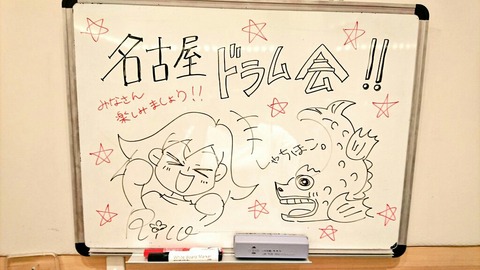 名古屋ドラム会!!
みなさん
楽しみましょう!!
しゃちほこ。